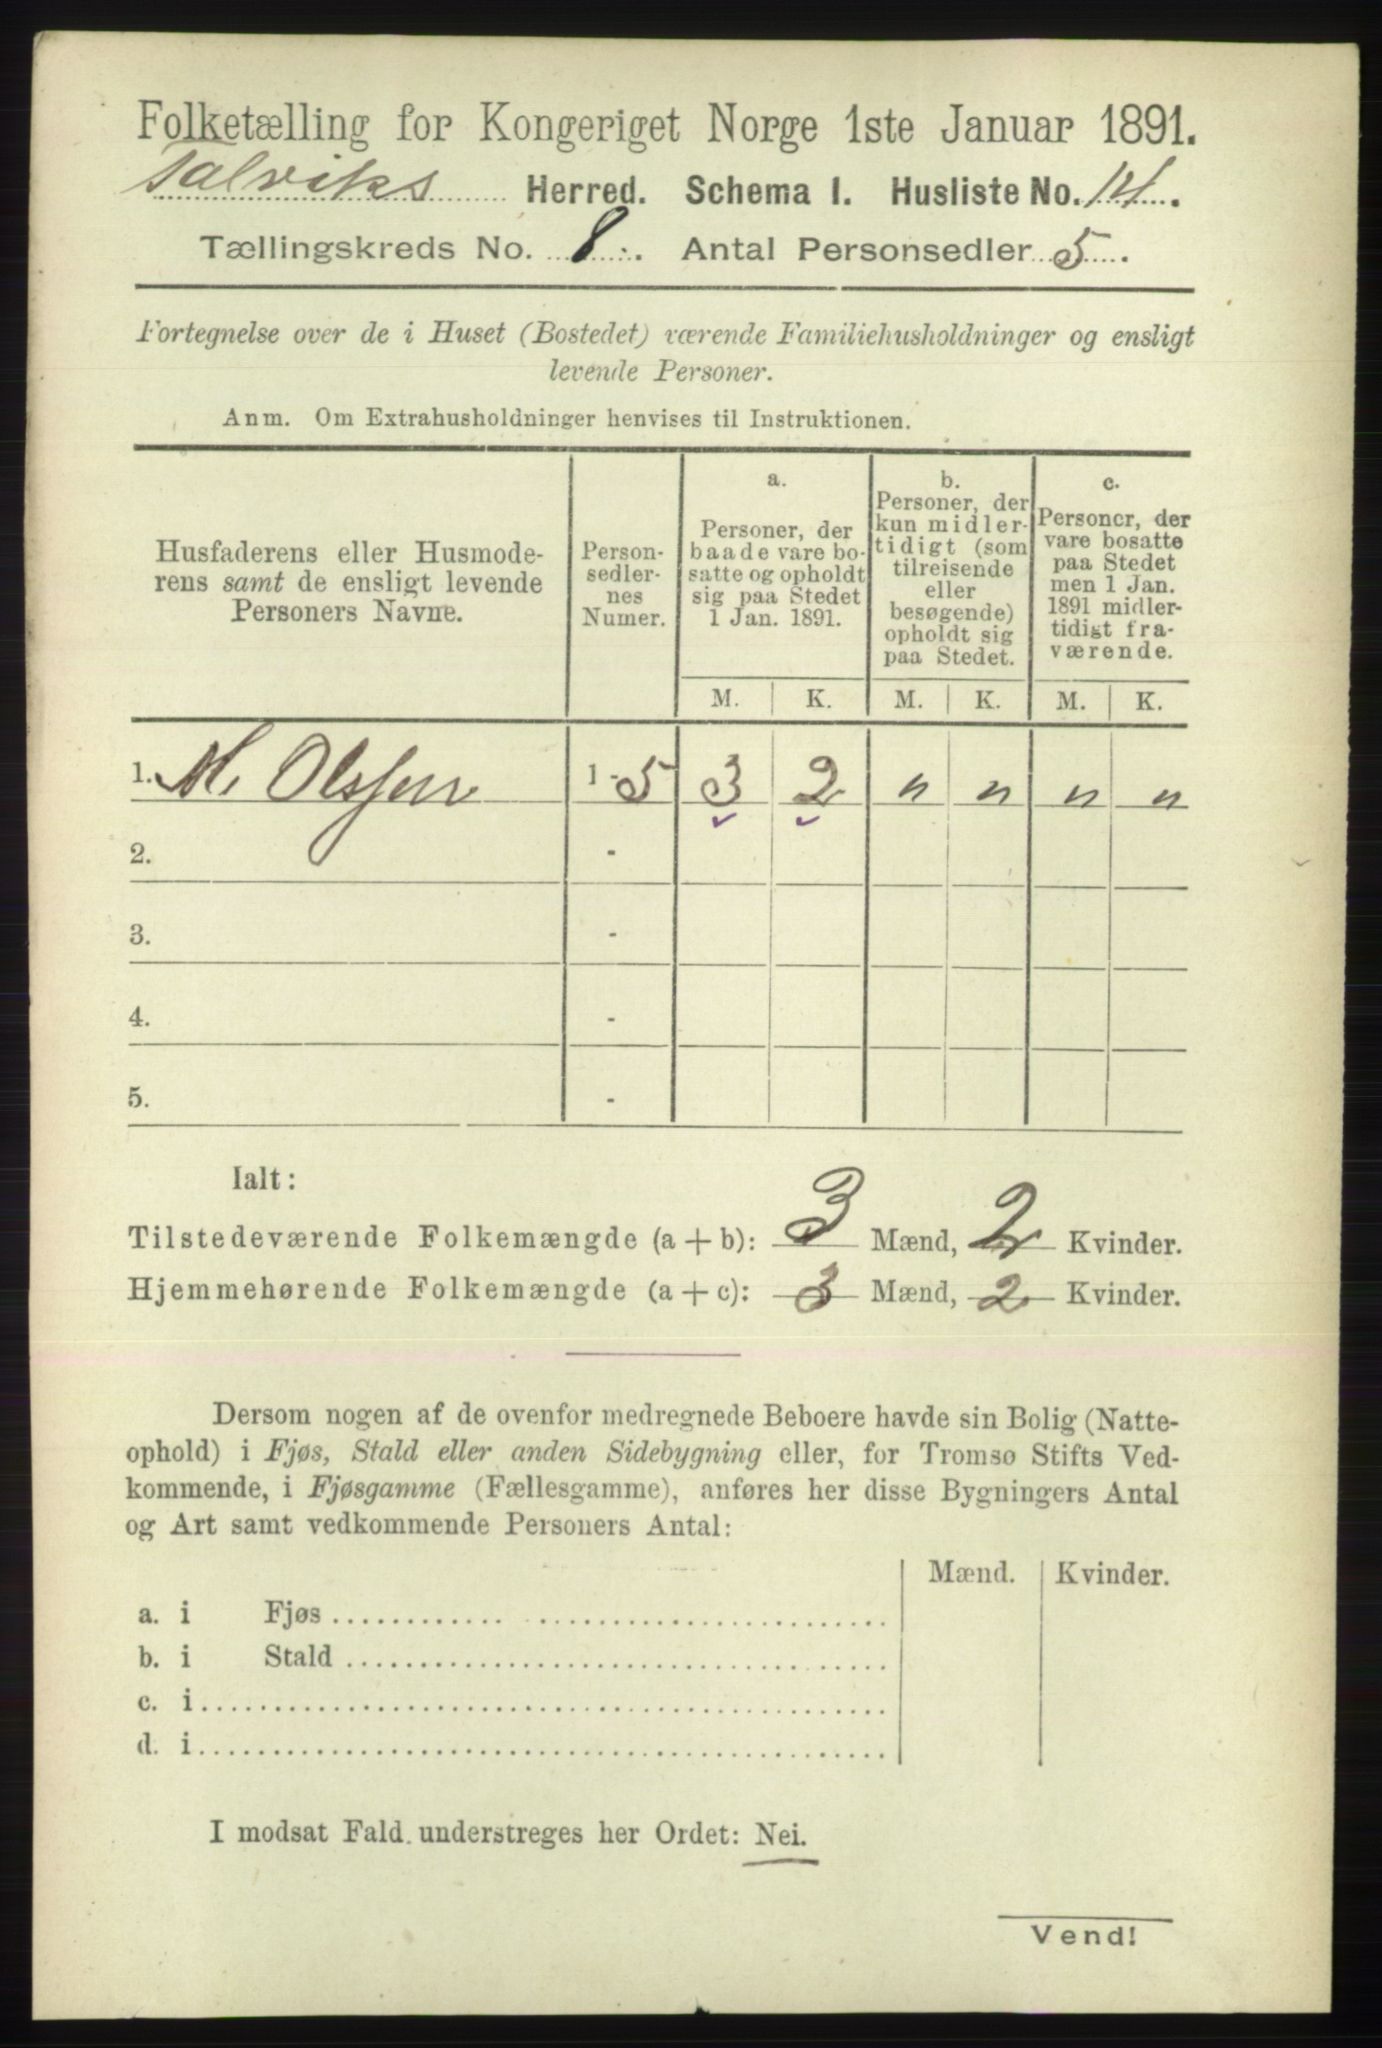 Folketælling for Kongeriget Norge 1ste Januar 1891.
Talviks Herred. Schema I. Husliste No. 14.
Tællingskreds No. 8. Antal Personsedler 5.
Fortegnelse over de i Huset (Bostedet) værende Familiehusholdninger og ensligt
levende Personer.
Anm. Om Extrahusholdninger henvises til Instruktionen.
Husfaderens eller Husmode-
rens samt de ensligt levende
Personers Navne.
Person-
sedler-
nes
Numer.
a.
Personer, der
baade vare bo-
satte og opholdt
sig paa Stedet
1 Jan. 1891.
b.
Personer, der
kun midler-
tidigt (som
tilreisende
eller
besøgende)
opholdt sig
paa Stedet.
c.
Personer, der
vare bosatte
paa Stedet
men 1 Jan.
1891 midler-
tidigt fra-
værende.
M. K. M. K. M. K.
1. M. Olsen 1 - 5 3 2 " " " "
2. -
3. -
4. -
5. -
Ialt:
Tilstedeværende Folkemængde (a + b): 3 Mænd, 2 Kvinder.
Hjemmehørende Folkemængde (a + c): 3 Mænd, 2 Kvinder.
Dersom nogen af de ovenfor medregnede Beboere havde sin Bolig (Natte-
ophold) i Fjøs, Stald eller anden Sidebygning eller, for Tromsø Stifts Ved-
kommende, i Fjøsgamme (Fællesgamme), anføres her disse Bygningers Antal
og Art samt vedkommende Personers Antal:
Mænd. Kvinder.
a. i Fjøs
b. i Stald
c. i
d. i
I modsat Fald understreges her Ordet: Nei.
Vend!